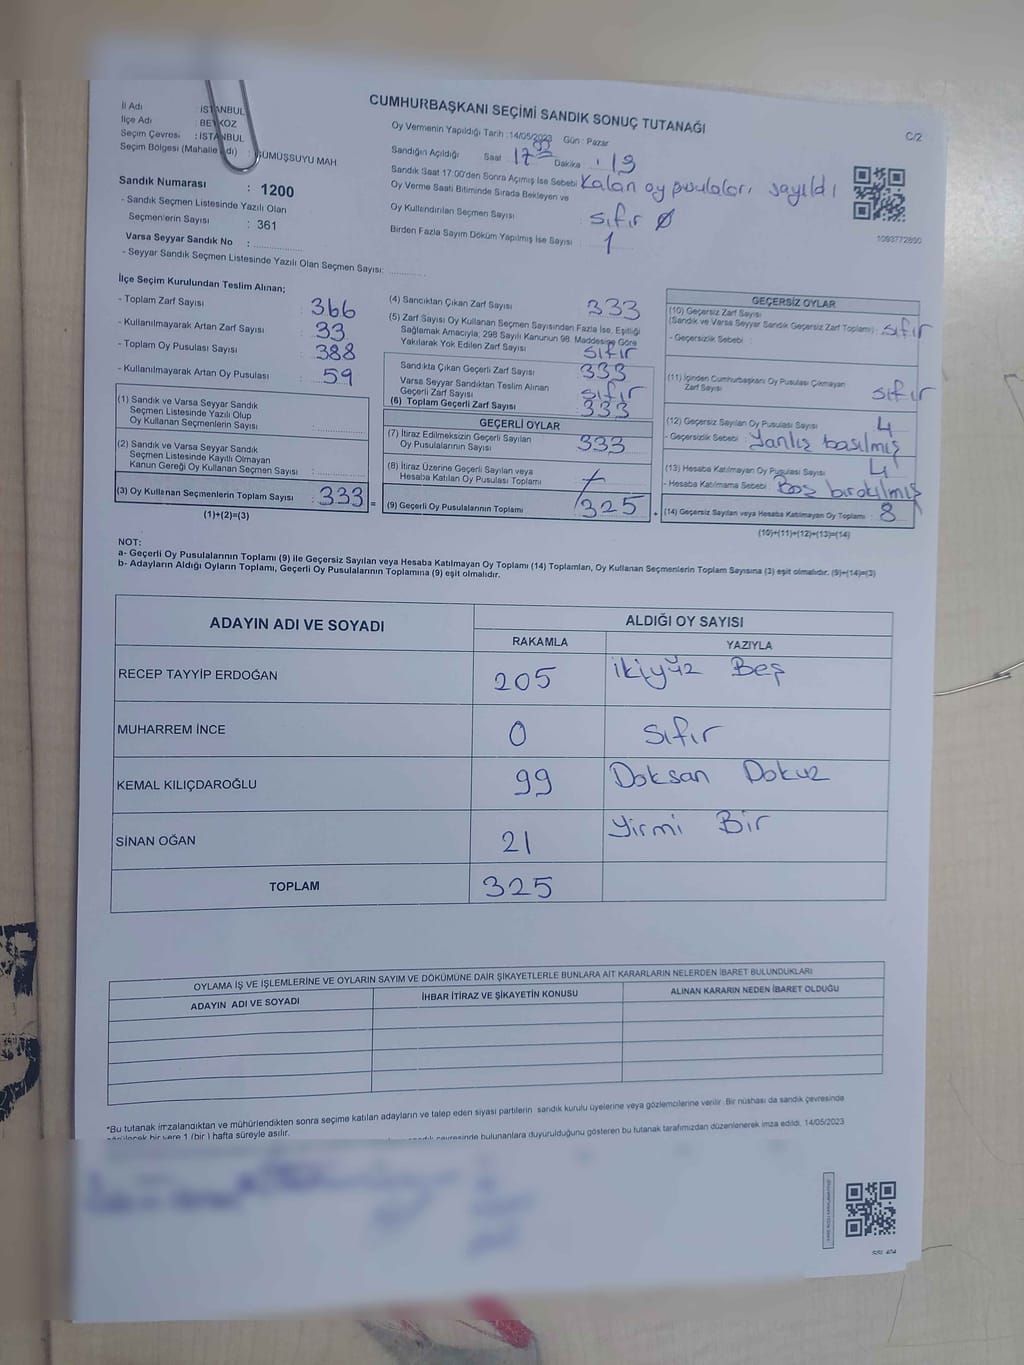 CUMHURBAŞKANI SEÇİMİ SANDIK SONUÇ TUTANAĞI
C/2
İl Adı : İSTANBUL
İlçe Adı : BEYKOZ
Seçim Çevresi : İSTANBUL
Seçim Bölgesi (Mahalle Adı) : GÜMÜŞSUYU MAH
Sandık Numarası : 1200
- Sandık Seçmen Listesinde Yazılı Olan
Seçmenlerin Sayısı : 361
Varsa Seyyar Sandık No :
- Seyyar Sandık Seçmen Listesinde Yazılı Olan Seçmen Sayısı:
Oy Vermenin Yapıldığı Tarih :14/05/2023 Gün : Pazar
Sandığın Açıldığı Saat 17 Dakika : 19
Sandık Saat 17:00'den Sonra Açımış İse Sebebi Kalan oy pusulaları sayıldı
Oy Verme Saati Bitiminde Sırada Bekleyen ve
Oy Kullandırılan Seçmen Sayısı : sıfır 0
Birden Fazla Sayım Döküm Yapılmış İse Sayısı : 1
1093772850
İlçe Seçim Kurulundan Teslim Alınan;
- Toplam Zarf Sayısı : 366
- Kullanılmayarak Artan Zarf Sayısı : 33
- Toplam Oy Pusulası Sayısı : 388
- Kullanılmayarak Artan Oy Pusulası : 59
(1) Sandık ve Varsa Seyyar Sandık
Seçmen Listesinde Yazılı Olup
Oy Kullanan Seçmenlerin Sayısı :
(2) Sandık ve Varsa Seyyar Sandık
Seçmen Listesinde Kayıtlı Olmayan
Kanun Gereği Oy Kullanan Seçmen Sayısı :
(3) Oy Kullanan Seçmenlerin Toplam Sayısı : 333 =
(1)+(2)=(3)
(4) Sandıktan Çıkan Zarf Sayısı : 333
(5) Zarf Sayısı Oy Kullanan Seçmen Sayısından Fazla İse, Eşitliği
Sağlamak Amacıyla; 298 Sayılı Kanunun 98. Maddesine Göre
Yakılarak Yok Edilen Zarf Sayısı : sıfır
Sandıkta Çıkan Geçerli Zarf Sayısı : 333
Varsa Seyyar Sandıktan Teslim Alınan
Geçerli Zarf Sayısı : sıfır
(6) Toplam Geçerli Zarf Sayısı : 333
GEÇERLİ OYLAR
(7) İtiraz Edilmeksizin Geçerli Sayılan
Oy Pusulasının Sayısı : 333
(8) İtiraz Üzerine Geçerli Sayılan veya
Hesaba Katılan Oy Pusulası Toplamı
(9) Geçerli Oy Pusulalarının Toplamı : 325
GEÇERSİZ OYLAR
(10) Geçersiz Zarf Sayısı
(Sandık ve Varsa Seyyar Sandık Geçersiz Zarf Toplamı) : sıfır
- Geçersizlik Sebebi :
(11) İçinden Cumhurbaşkanı Oy Pusulası Çıkmayan
Zarf Sayısı : sıfır
(12) Geçersiz Sayılan Oy Pusulası Sayısı : 4
- Geçersizlik Sebebi : Yanlız basılmış
(13) Hesaba Katılmayan Oy Pusulası Sayısı : 4
- Hesaba Katılmama Sebebi : Boş bırakılmış
(14) Geçersiz Sayılan veya Hesaba Katılmayan Oy Toplamı : 8
(10)+(11)+(12)+(13)=(14)
NOT:
a- Geçerli Oy Pusulalarının Toplamı (9) ile Geçersiz Sayılan veya Hesaba Katılmayan Oy Toplamı (14) Toplamları, Oy Kullanan Seçmenlerin Toplam Sayısına (3) eşit olmalıdır. (9)+(14)=(3)
b- Adayların Aldığı Oyların Toplamı, Geçerli Oy Pusulalarının Toplamına (9) eşit olmalıdır.
ADAYIN ADI VE SOYADI
ALDIĞI OY SAYISI
RAKAMLA YAZIYLA
RECEP TAYYİP ERDOĞAN 205 ikiyüz Beş
MUHARREM İNCE 0 sıfır
KEMAL KILIÇDAROĞLU 99 Doksan Dokuz
SİNAN OĞAN 21 Yirmi Bir
TOPLAM 325
OYLAMA İŞ VE İŞLEMLERİNE VE OYLARIN SAYIM VE DÖKÜMÜNE DAİR ŞİKAYETLERLE BUNLARA AİT KARARLARIN NELERDEN İBARET BULUNDUKLARI
ADAYIN ADI VE SOYADI İHBAR İTİRAZ VE ŞİKAYETİN KONUSU ALINAN KARARIN NEDEN İBARET OLDUĞU
*Bu tutanak imzalandıktan ve mühürlendikten sonra seçime katılan adayların ve talep eden siyasi partilerin sandık kurulu üyelerine veya gözlemcilerine verilir. Bir nüshası da sandık çevresinde
görülecek bir yere 1 (bir) hafta süreyle asılır.
sandık çevresinde bulunanlara duyurulduğunu gösteren bu tutanak tarafımızdan düzenlenerek imza edildi. 14/05/2023